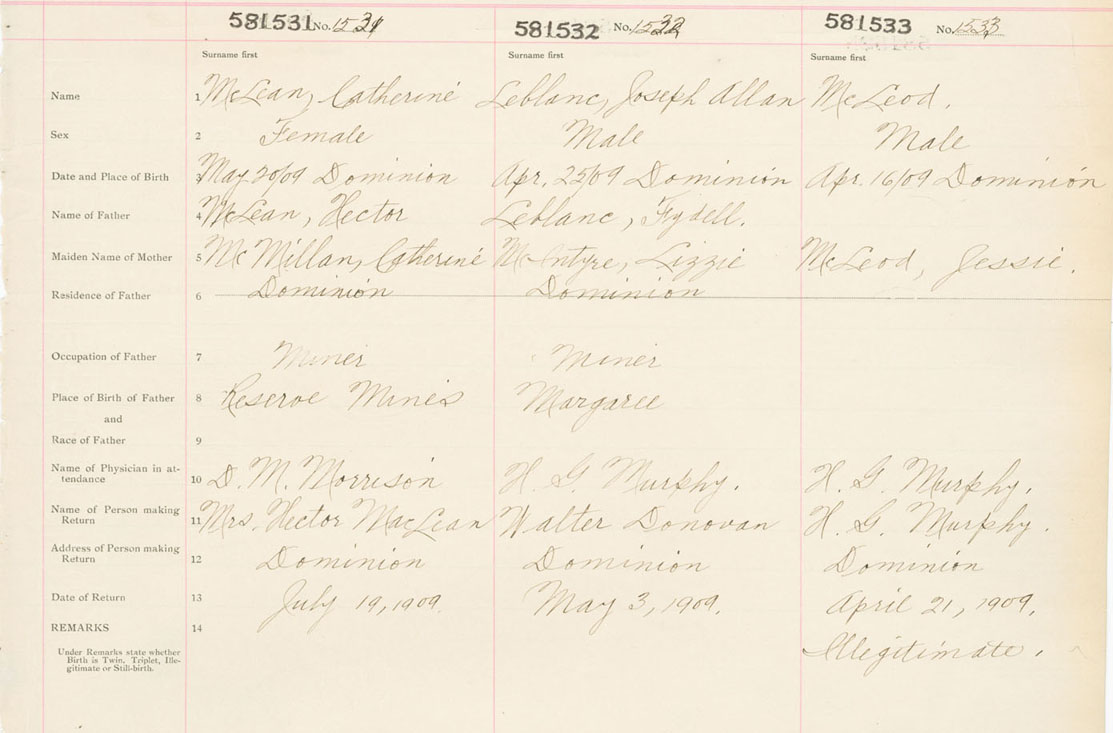 581531 No. 1531 581532 No. 1532 581533 No. 1533
Surname first Surname first Surname first
Name 1 McLean, Catherine Leblanc, Joseph Allan McLeod.
Sex 2 Female Male Male
Date and Place of Birth 3 May 20/09 Dominion Apr. 25/09 Dominion Apr. 16/09 Dominion
Name of Father 4 McLean, Hector Leblanc, Fydell.
Maiden Name of Mother 5 McMillan, Catherine McIntyre, Lizzie McLeod, Jessie.
Residence of Father 6 Dominion Dominion
Occupation of Father 7 Miner Miner
Place of Birth of Father 8 Reserve Mines Margaree
and
Race of Father 9
Name of Physician in at-
tendance 10 D. M. Morrison H. G. Murphy. H. G. Murphy.
Name of Person making
Return 11 Mrs. Hector MacLean Walter Donovan H. G. Murphy.
Address of Person making
Return 12 Dominion Dominion Dominion
Date of Return 13 July 19, 1909. May 3, 1909. April 21, 1909.
REMARKS 14
Under Remarks state whether
Birth is Twin, Triplet, Ille-
gitimate or Still-birth.
Illegitimate.